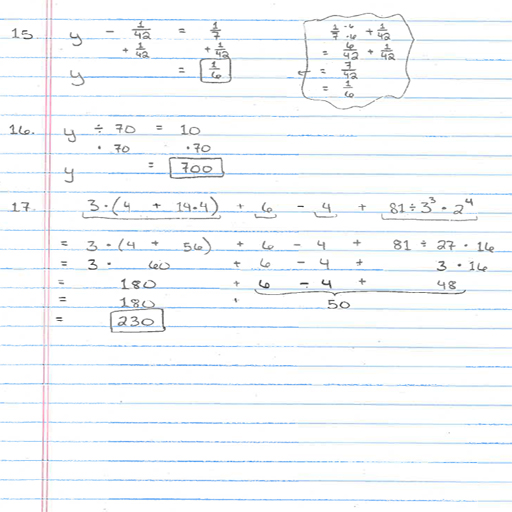 15 y - 1/42 = 1/7
+ 1/42 + 1/42
y = 1/6
1/7 ·6/·6 + 1/42
= 6/42 + 1/42
= 7/42
= 1/6
16. y ÷ 70 = 10
· 70 · 70
y = 700
17. 3·(4 + 14·4) + 6 - 4 + 81÷3³·2⁴
= 3·(4 + 56) + 6 - 4 + 81 ÷ 27 · 16
= 3· 60 + 6 - 4 + 3 · 16
= 180 + 6 - 4 + 48
= 180 + 50
= 230